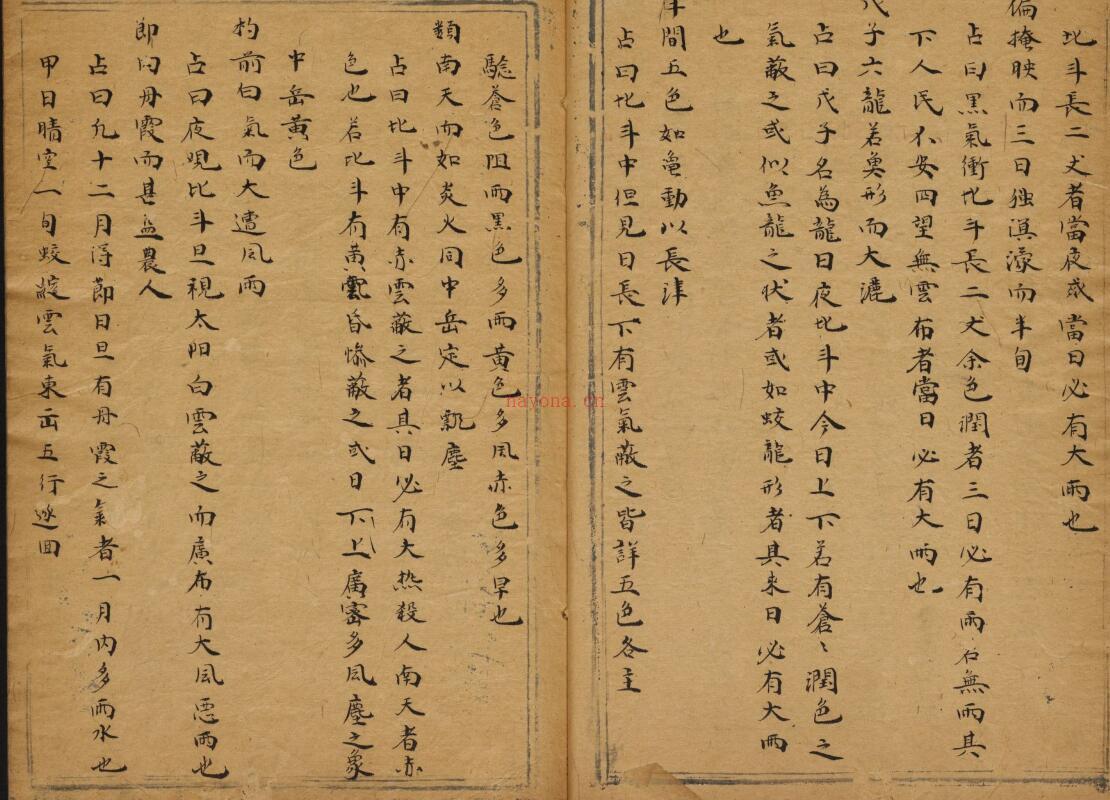 北斗長二丈者當夜或當日必有大雨也
偏掩映而三日独溟濛而半旬
占曰黑氣衝北斗長二丈余色潤者三日必有雨若無雨其
下人民不安四望無雲布者當日必有大雨也
戊子六龍若奠形而大漉
占曰戊子名為龍日夜北斗中今日上下若有蒼〻潤色之
氣蔽之或似魚龍之状者或如蛟龍形者其来日必有大雨
也
間五色如黽動以長津
占曰北斗中但見日長下有雲氣蔽之皆詳五色各主
騐蒼色阻雨黑色多雨黄色多風赤色多旱也
類南天而如炎火同中岳定以飄塵
占曰北斗中有赤雲蔽之者其日必有大热殺人南天者赤
色也若北斗有黄氣昏惨蔽之或日下上廣密多風塵之象
中岳黄色
杓前白氣而大遭風雨
占曰夜覌北斗旦視太阳白雲蔽之而廣布有大風惡雨也
即向丹霞而甚益農人
占曰九十二月得節日旦有丹霞之氣者一月内多雨水也
甲日晴空一旬蛟綻雲氣東岳五行逆回
nayona.cn